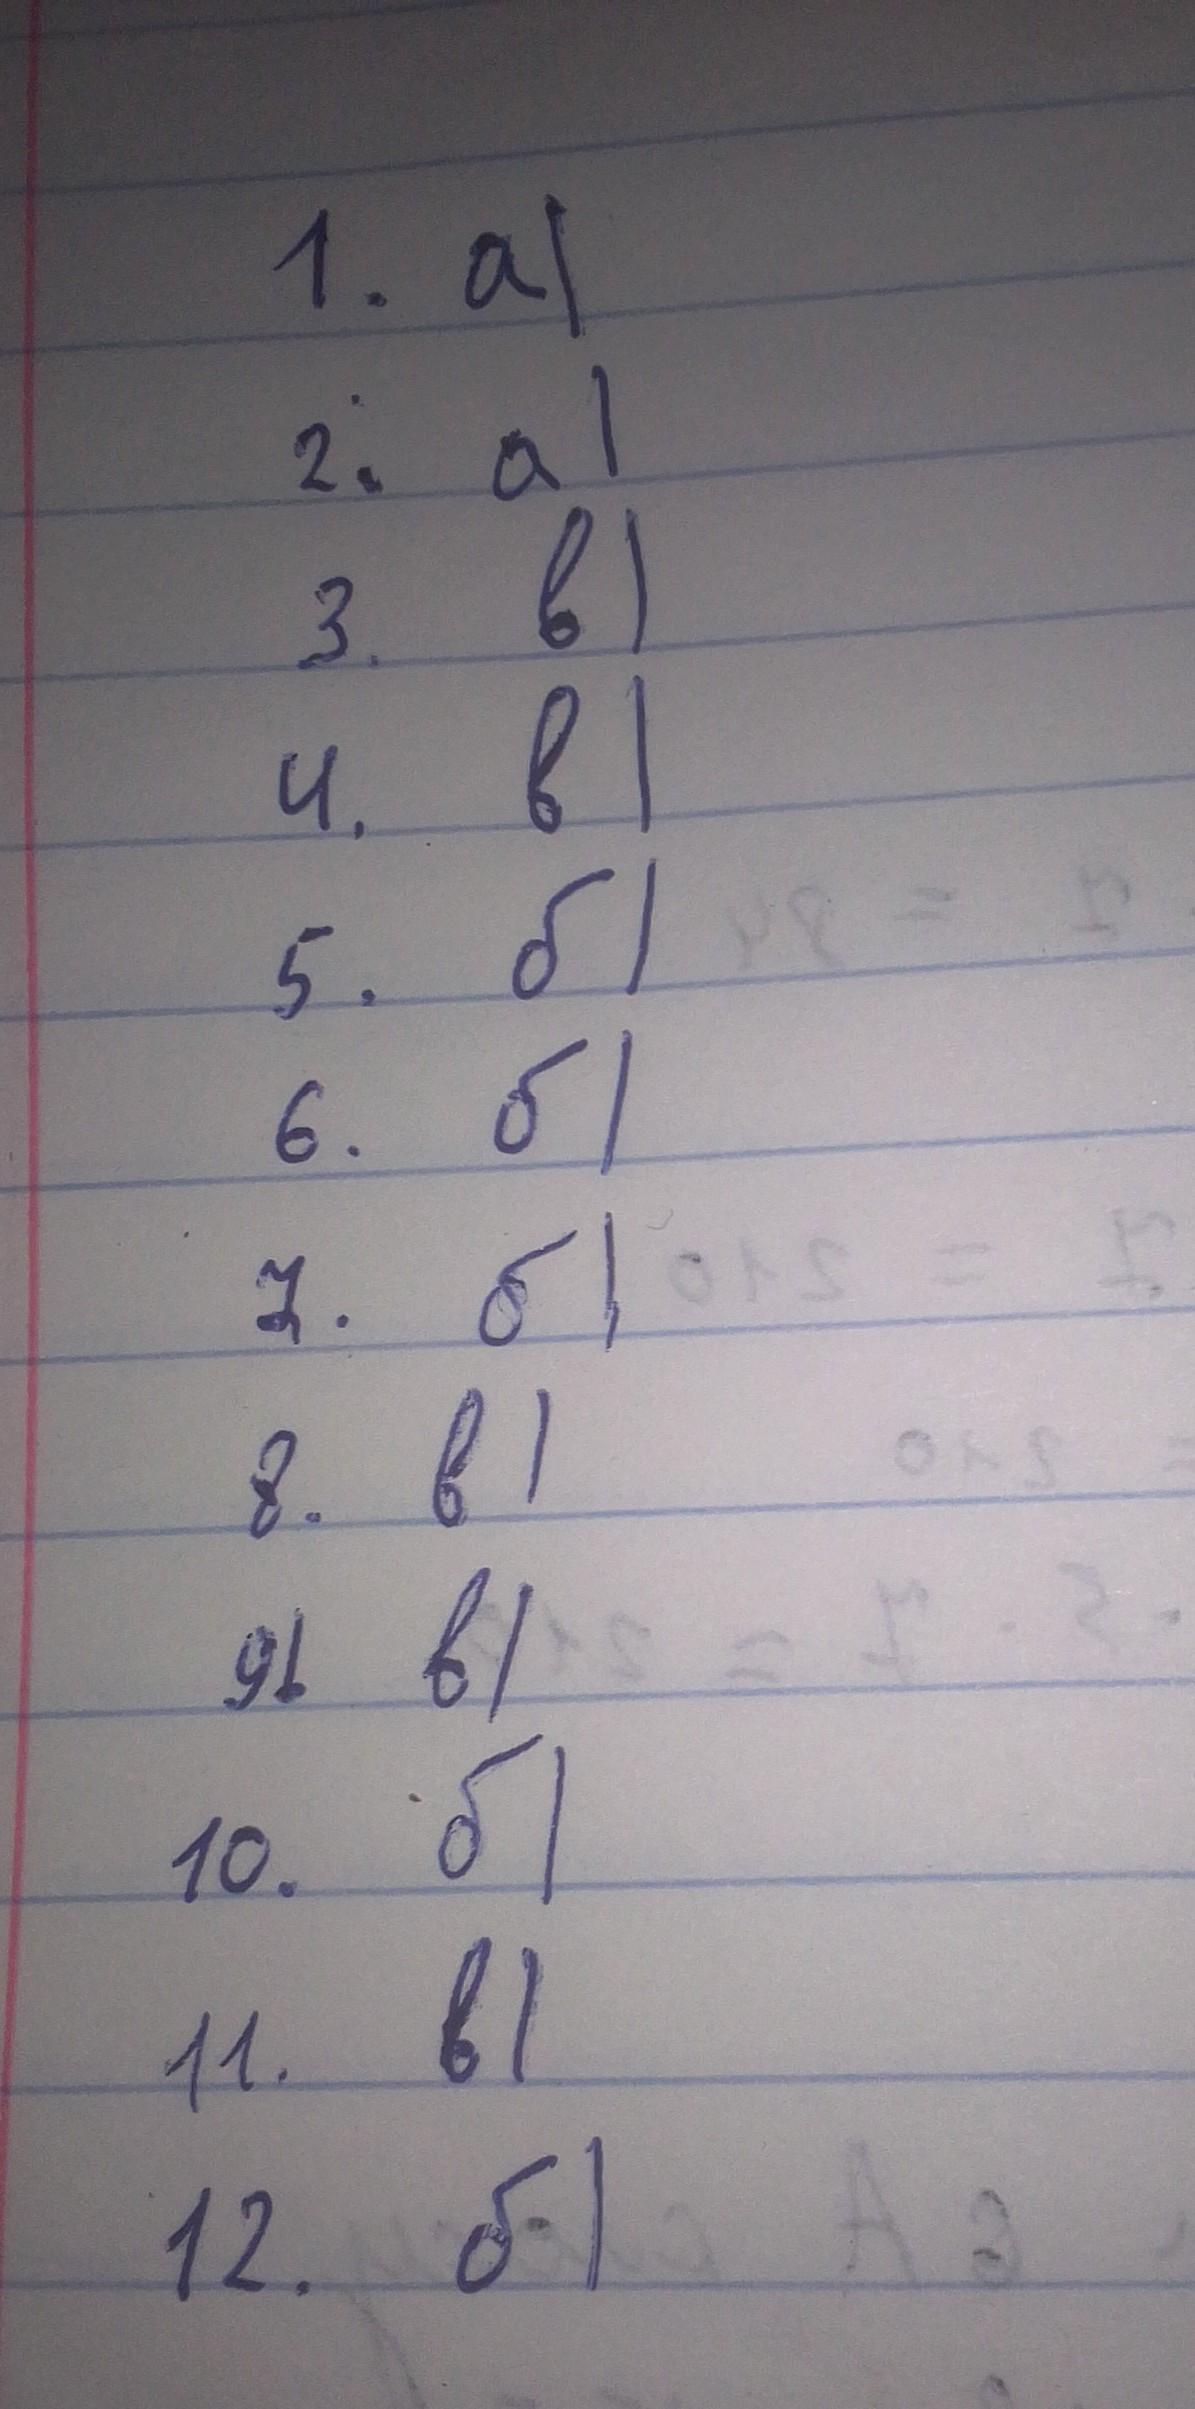 1. а)
2. а)
3. в)
4. в)
5. б)
6. б)
7. б)
8. в)
9. в)
10. б)
11. в)
12. б)